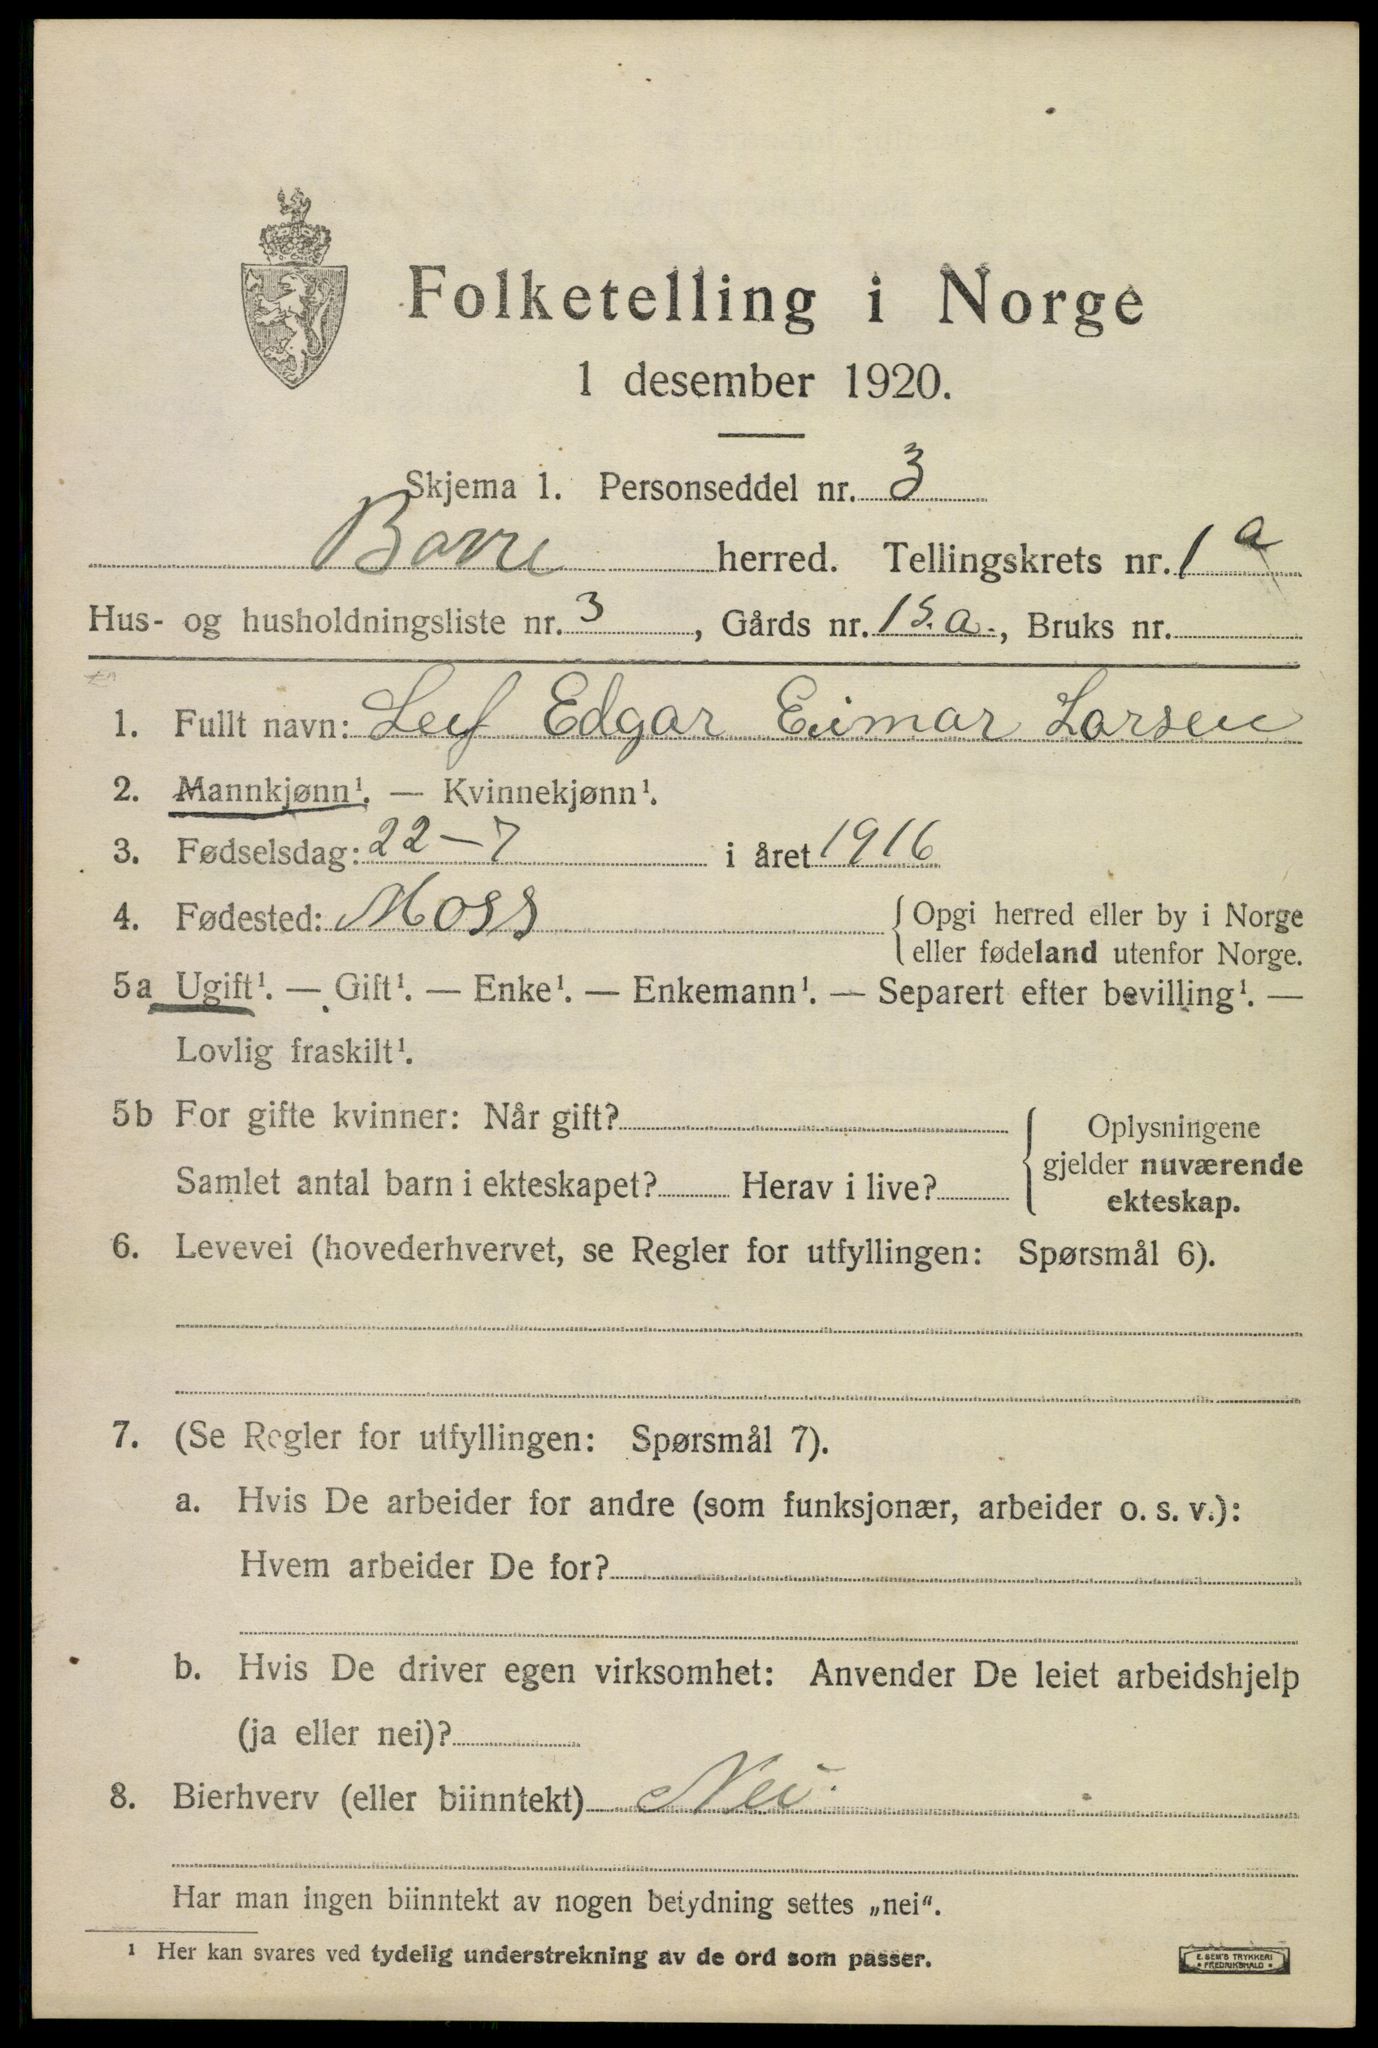 Folketelling i Norge
1 desember 1920.
Skjema 1. Personseddel nr. 3
Borre herred. Tellingskrets nr. 1 a
Hus- og husholdningsliste nr. 3, Gårds nr. 15.a., Bruks nr.
1. Fullt navn: Leif Edgar Eimar Larsen
2. Mannkjønn¹. — Kvinnekjønn¹.
3. Fødselsdag: 22-7 i året 1916
4. Fødested: Moss { Opgi herred eller by i Norge
eller fødeland utenfor Norge.
5a Ugift¹. — Gift¹. — Enke¹. — Enkemann¹. — Separert efter bevilling¹. —
Lovlig fraskilt¹.
5b For gifte kvinner: Når gift? { Oplysningene
gjelder nuværende
ekteskap.
Samlet antal barn i ekteskapet? Herav i live?
6. Levevei (hovederhvervet, se Regler for utfyllingen: Spørsmål 6).
7. (Se Regler for utfyllingen: Spørsmål 7).
a. Hvis De arbeider for andre (som funksjonær, arbeider o. s. v.):
Hvem arbeider De for?
b. Hvis De driver egen virksomhet: Anvender De leiet arbeidshjelp
(ja eller nei)?
8. Bierhverv (eller biinntekt) Nei.
Har man ingen biinntekt av nogen betydning settes „nei“.
¹ Her kan svares ved tydelig understrekning av de ord som passer.
E. SEM'S TRYKKERI
• FREDRIKSHALD •